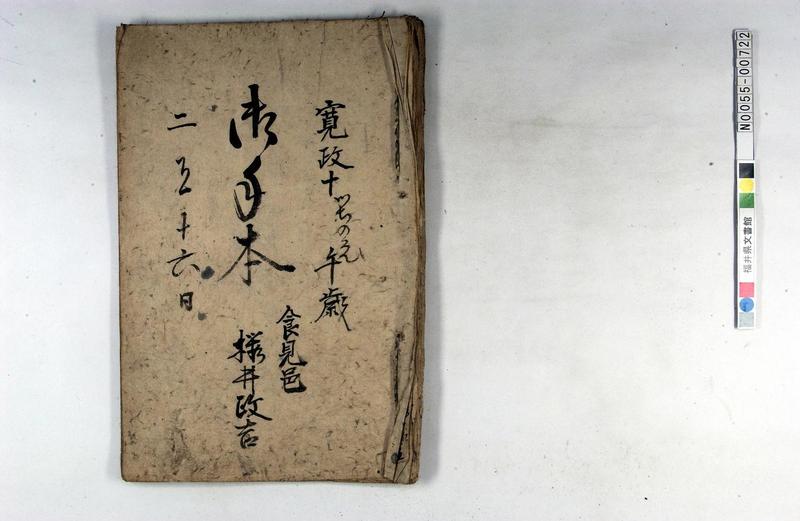 寛政十つちのえ午歳
御手本
二月十六日
食見邑
桜井政吉
N0055-00722
福井県文書館